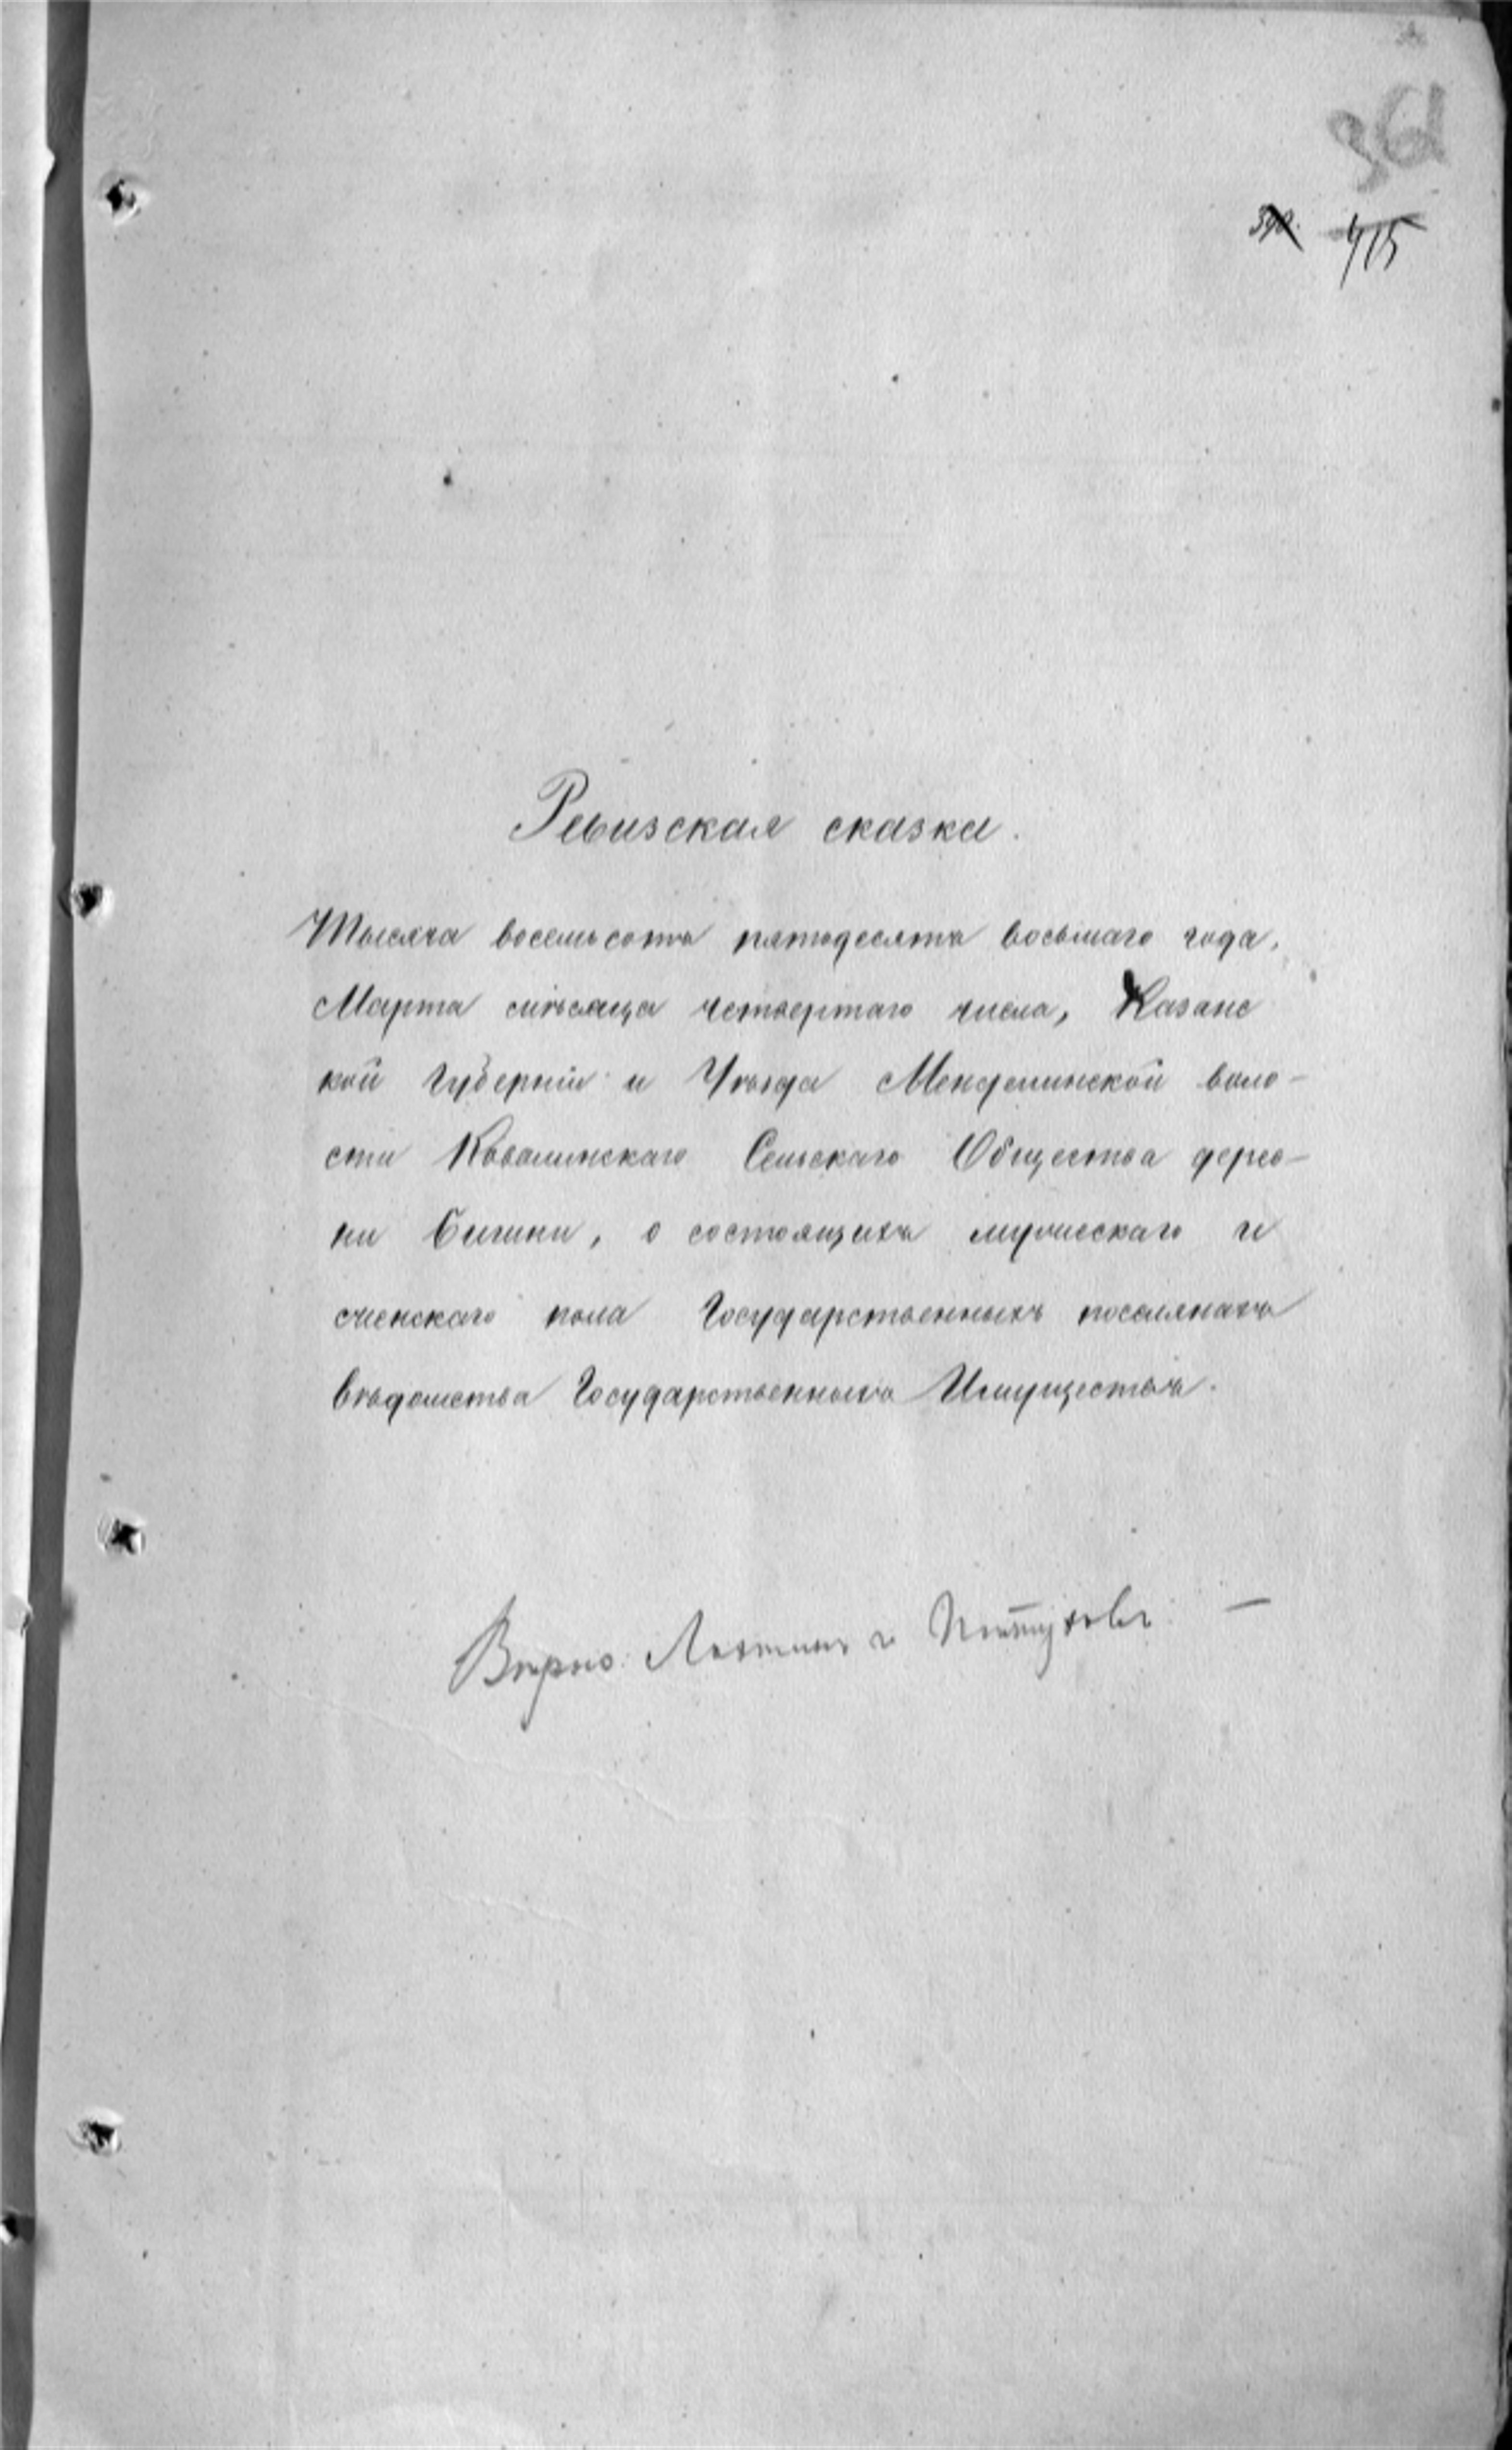 361
415
Ревизская сказка.
Тысяча восемьсотъ пятьдесятъ восьмаго года,
Марта мѣсяца четвертаго числа, Казанс
кой Губерніи и Уѣзда Менделинской воло-
сти Ковалинскаго Сельскаго Общества дерев-
ни Бимери, о состоящихъ мужескаго и
женскаго пола Государственныхъ поселянахъ
вѣдомства Государственныхъ Имуществъ.
Вѣрно: